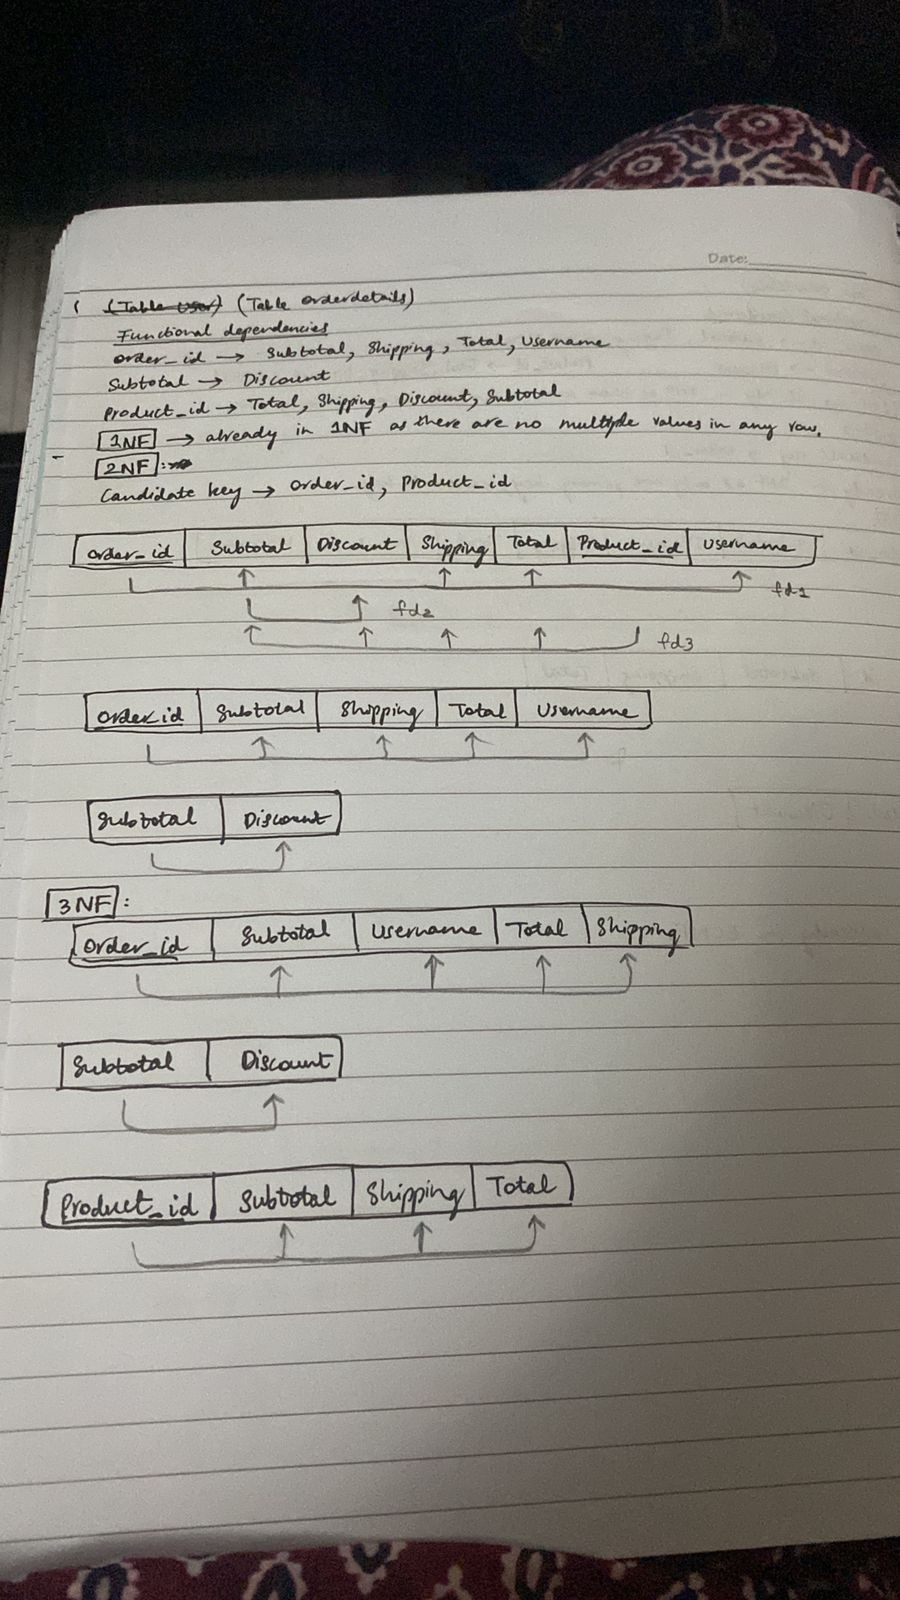 Date:
(Table User) (Table orderdetails)
Functional dependencies
order_id → Subtotal, Shipping, Total, Username
Subtotal → Discount
Product_id → Total, Shipping, Discount, Subtotal
1NF → already in 1NF as there are no multiple values in any row.
2NF:
Candidate key → order_id, Product_id
order_id Subtotal Discount Shipping Total Product_id Username
fd1
fd2
fd3
order_id Subtotal Shipping Total Username
Subtotal Discount
3NF:
Order_id Subtotal Username Total Shipping
Subtotal Discount
Product_id Subtotal Shipping Total